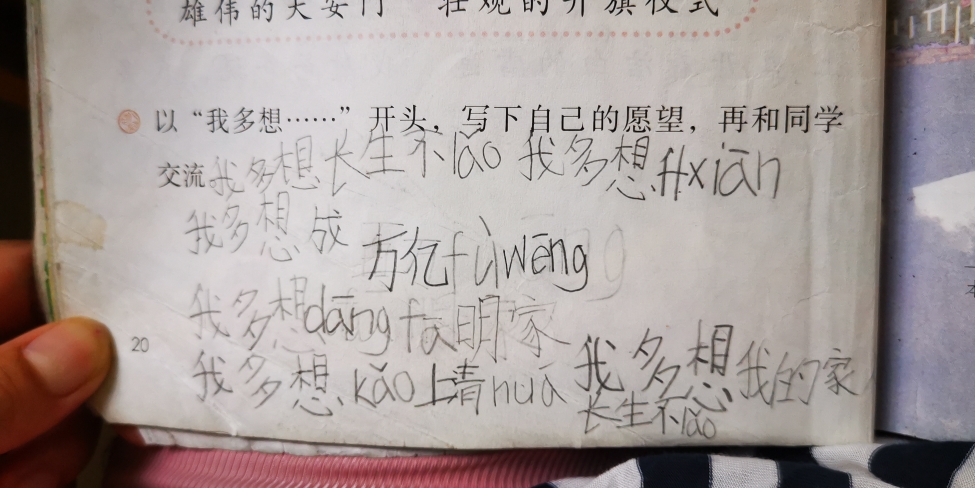 雄伟的天安门 壮观的升旗仪式
以“我多想……”开头，写下自己的愿望，再和同学
交流 我多想长生不lǎo 我多想升xiān
我多想成万亿fùwēng
我多想dāng fā明家
我多想kǎo上清huá 我多想我的家
长生不lǎo
20